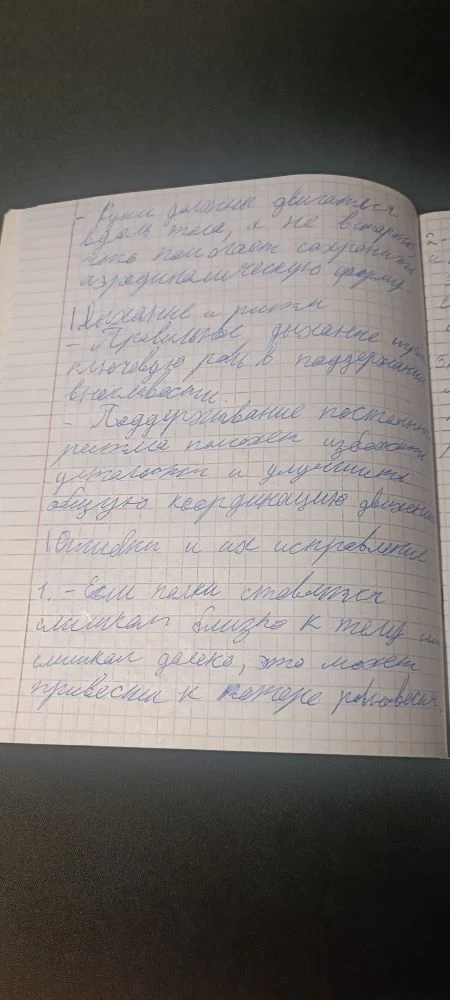 - Руки должны двигаться
вдоль тела, а не в стороны
что помогает сохранить
аэродинамическую форму
Дыхание и ритм
- Правильное дыхание играе
ключевую роль в поддержании
выносливости.
- Поддерживание постоянн
ритма поможет избежать
усталости и улучшить
общую координацию движени
Ошибки и их исправление
1. - Если палки ставятся
слишком близко к телу или
слишком далеко, это может
привести к потере равновесия.
2.-
и
3.